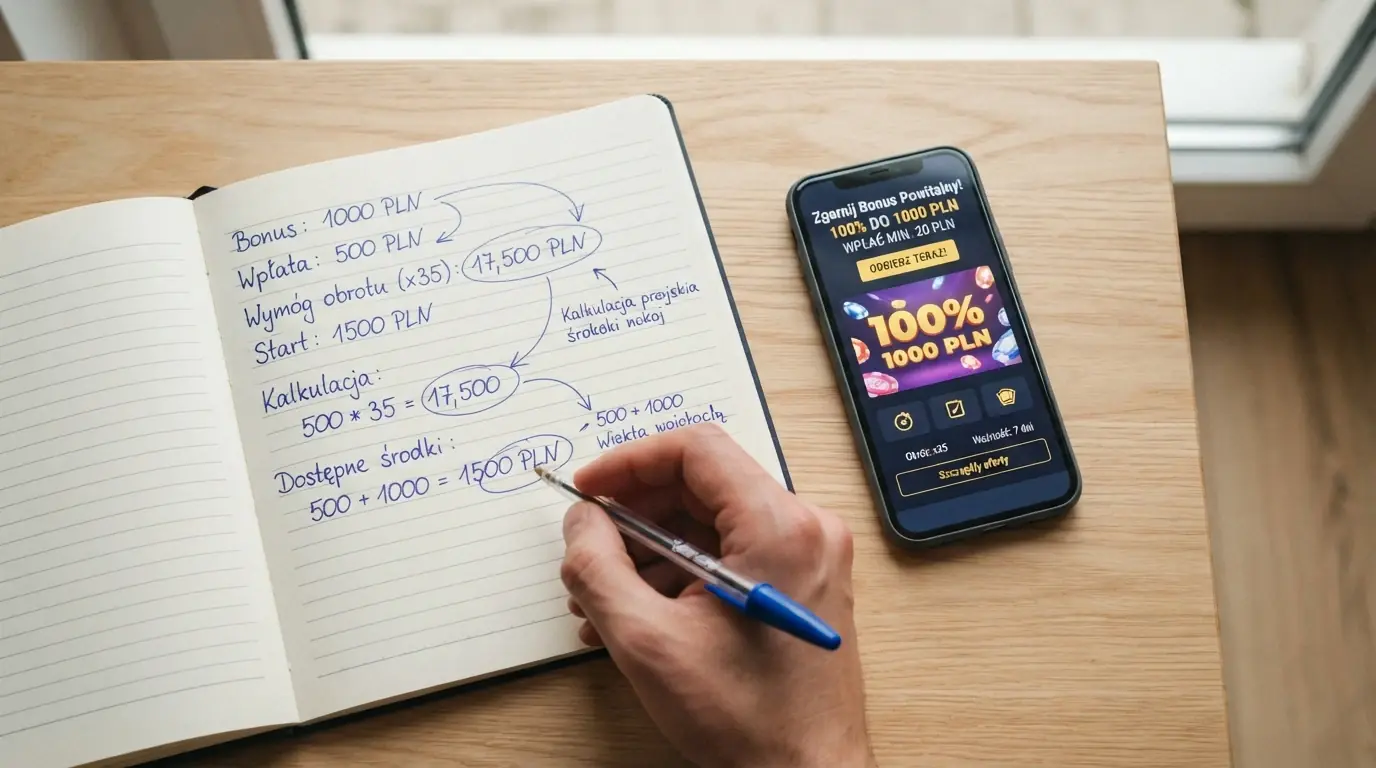 Bonus: 1000 PLN
Wpłata: 500 PLN
Wymóg obrotu (x35): 17,500 PLN
Start: 1500 PLN
Kalkulacja prejskia
środki nokoj
Kalkulacja:
500 * 35 = 17,500
500 + 1000
Wiekta
Dostępne środki:
500 + 1000 = 1500 PLN
Zgarnij Bonus Powitalny!
100% DO 1000 PLN
WPŁAĆ MIN. 20 PLN
ODBIERZ TERAZ!
100%
1000 PLN
x35
7 dni
oferty